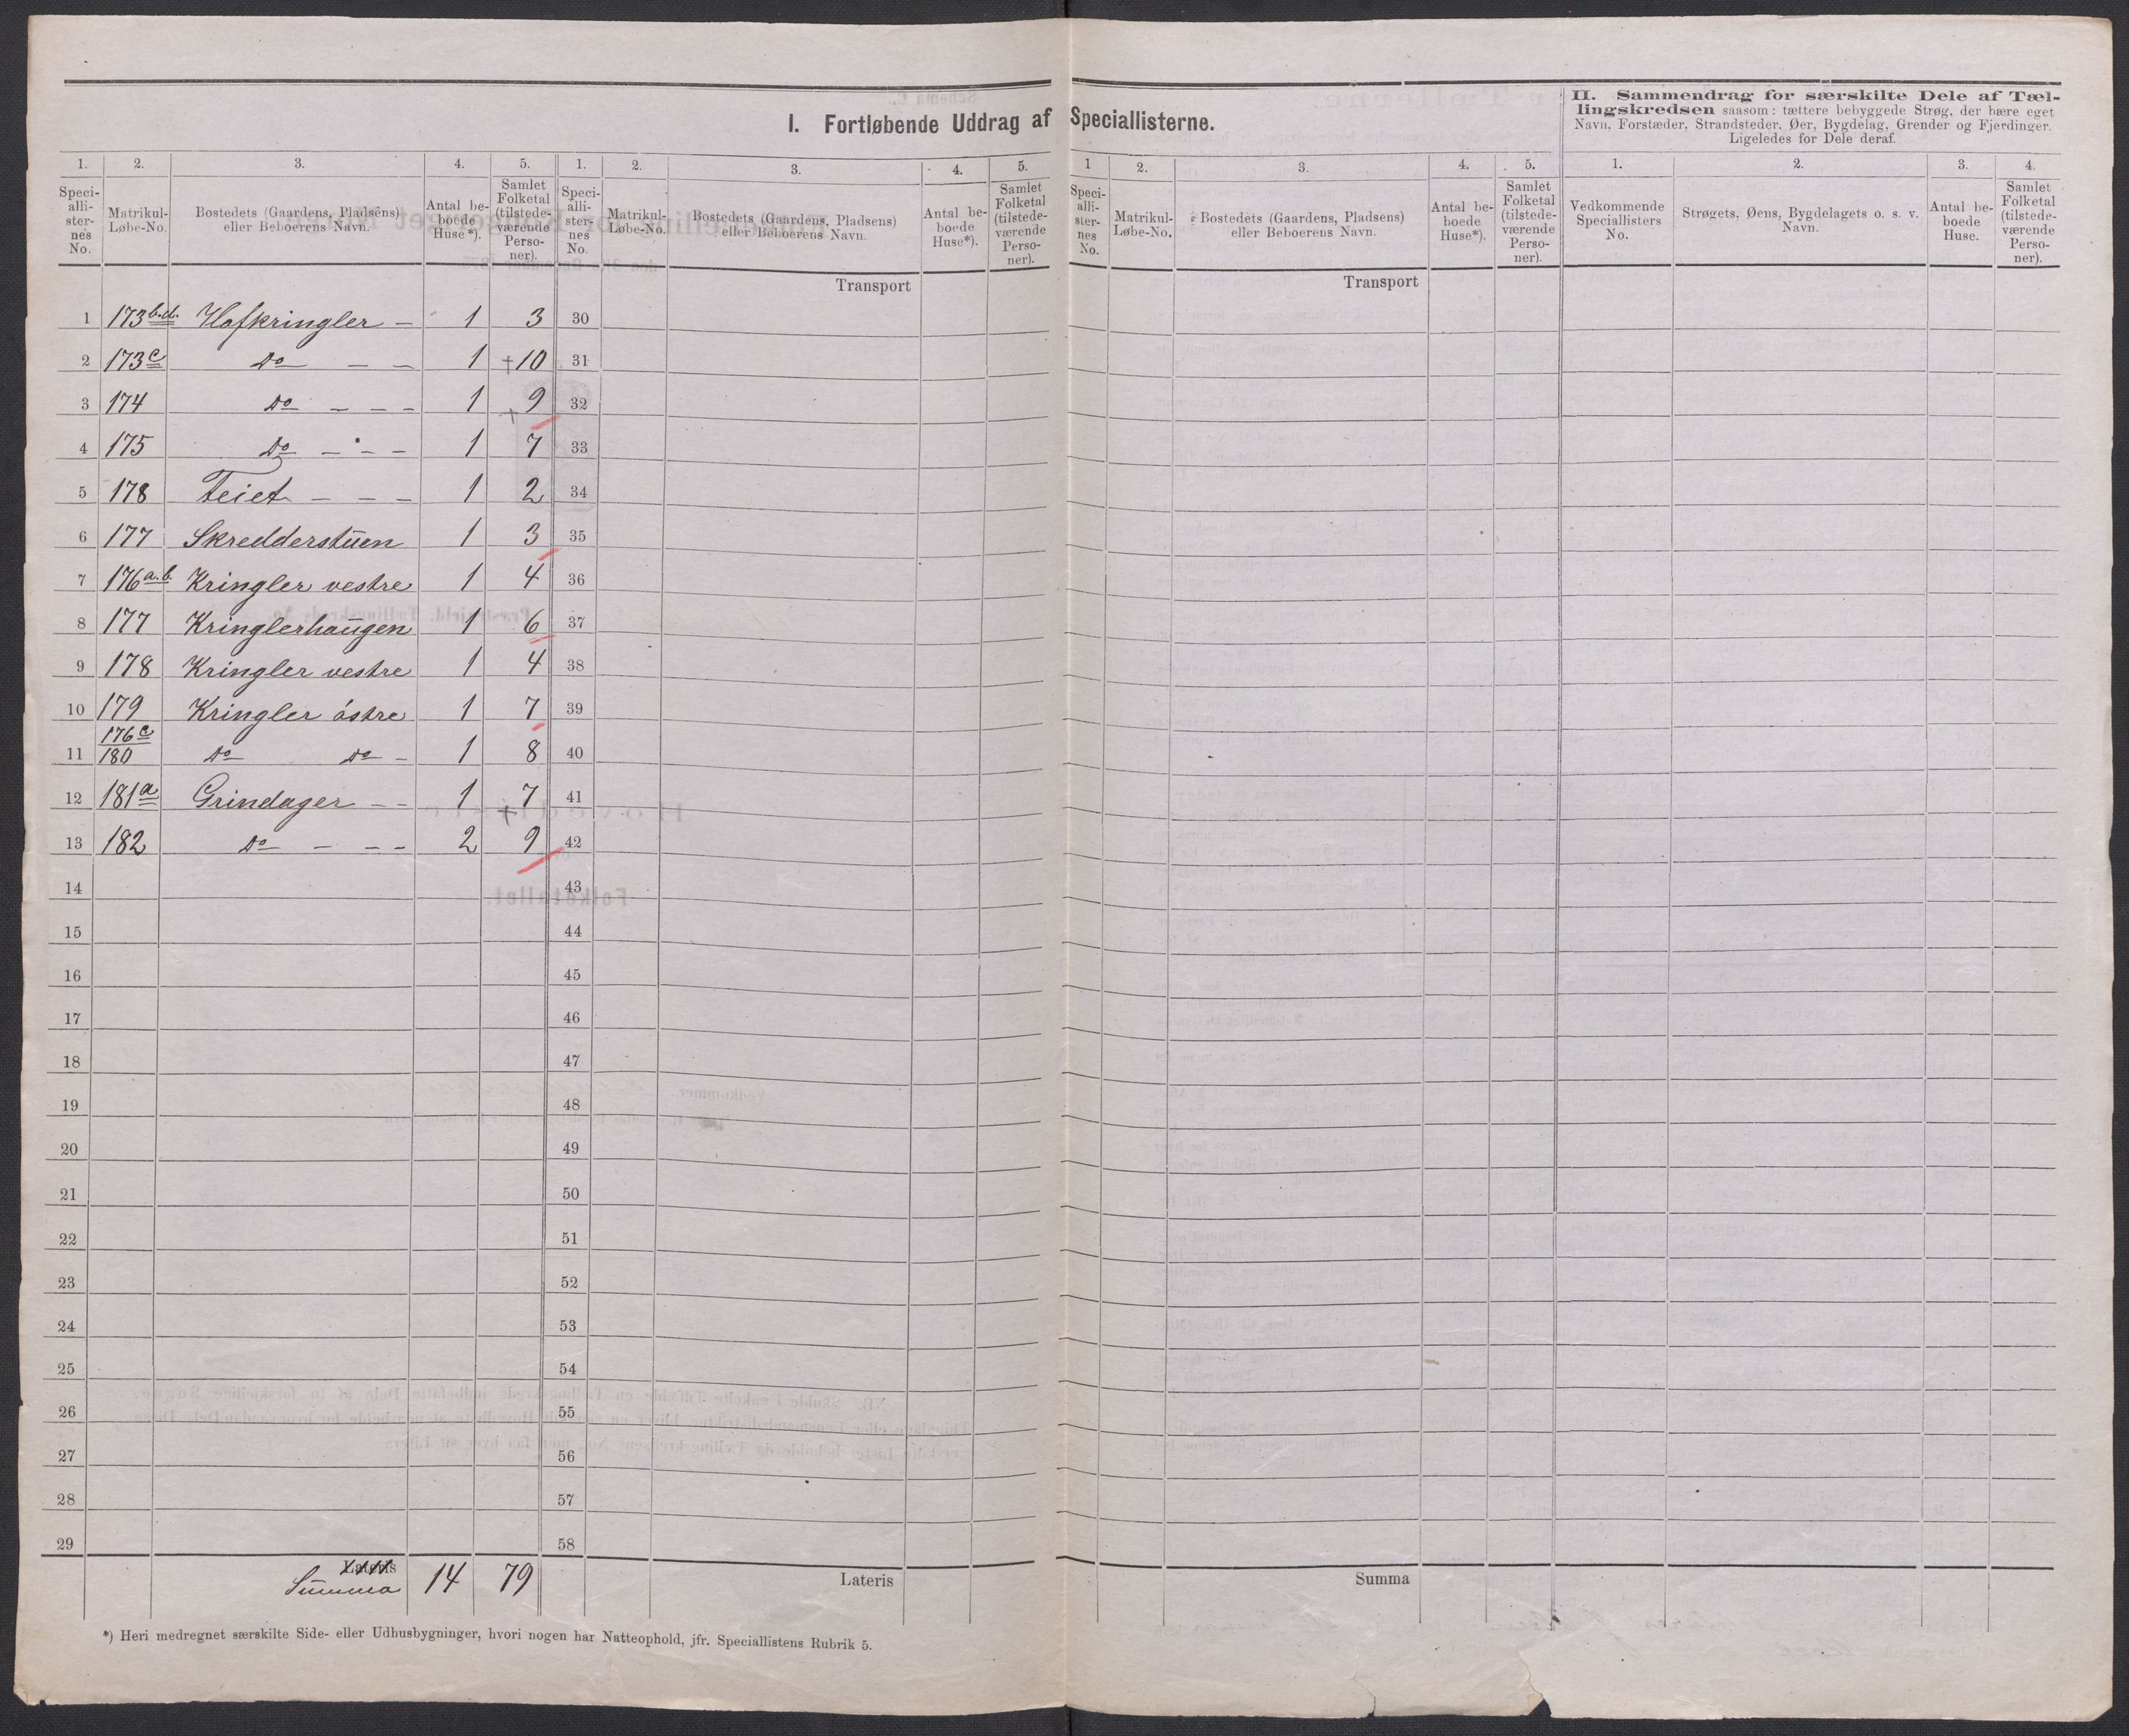 I. Fortløbende Uddrag af Speciallisterne.
II. Sammendrag for særskilte Dele af Tæl-
lingskredsen saasom: tættere bebyggede Strøg, der bære eget
Navn, Forstæder, Strandsteder, Øer, Bygdelag, Grender og Fjerdinger.
Ligeledes for Dele deraf.
1. 2. 3. 4. 5. 1. 2. 3. 4. 5. 1 2. 3. 4. 5. 1. 2. 3. 4.
Speci-
alli-
ster-
nes
No.
Matrikul-
Løbe-No.
Bostedets (Gaardens, Pladsens)
eller Beboerens Navn.
Antal be-
boede
Huse*).
Samlet
Folketal
(tilstede-
værende
Perso-
ner).
Speci-
alli-
ster-
nes
No.
Matrikul-
Løbe-No.
Bostedets (Gaardens, Pladsens)
eller Beboerens Navn.
Antal be-
boede
Huse*).
Samlet
Folketal
(tilstede-
værende
Perso-
ner).
Speci-
alli-
ster-
nes
No.
Matrikul-
Løbe-No.
Bostedets (Gaardens, Pladsens)
eller Beboerens Navn.
Antal be-
boede
Huse*).
Samlet
Folketal
(tilstede-
værende
Perso-
ner).
Vedkommende
Speciallisters
No.
Strøgets, Øens, Bygdelagets o. s. v.
Navn.
Antal be-
boede
Huse.
Samlet
Folketal
(tilstede-
værende
Perso-
ner).
Transport Transport
1 173b.d. Hofkringler – 1 3 30
2 173c do – – 1 +10 31
3 174 do – – – 1 9 32
4 175 do – – – 1 7 33
5 178 Teiet – – – 1 2 34
6 177 Skredderstuen 1 3 35
7 176a.b. Kringler vestre 1 4 36
8 177 Kringlerhaugen 1 6 37
9 178 Kringler vestre 1 4 38
10 179 Kringler østre 1 7 39
176c
11 180 do do – 1 8 40
12 181a Grindager – – 1 7 41
13 182 do – – – 2 9 42
14 43
15 44
16 45
17 46
18 47
19 48
20 49
21 50
22 51
23 52
24 53
25 54
26 55
27 56
28 57
29 58
Lateris
Summa 14 79 Lateris Summa
*) Heri medregnet særskilte Side- eller Udhusbygninger, hvori nogen har Natteophold, jfr. Speciallistens Rubrik 5.